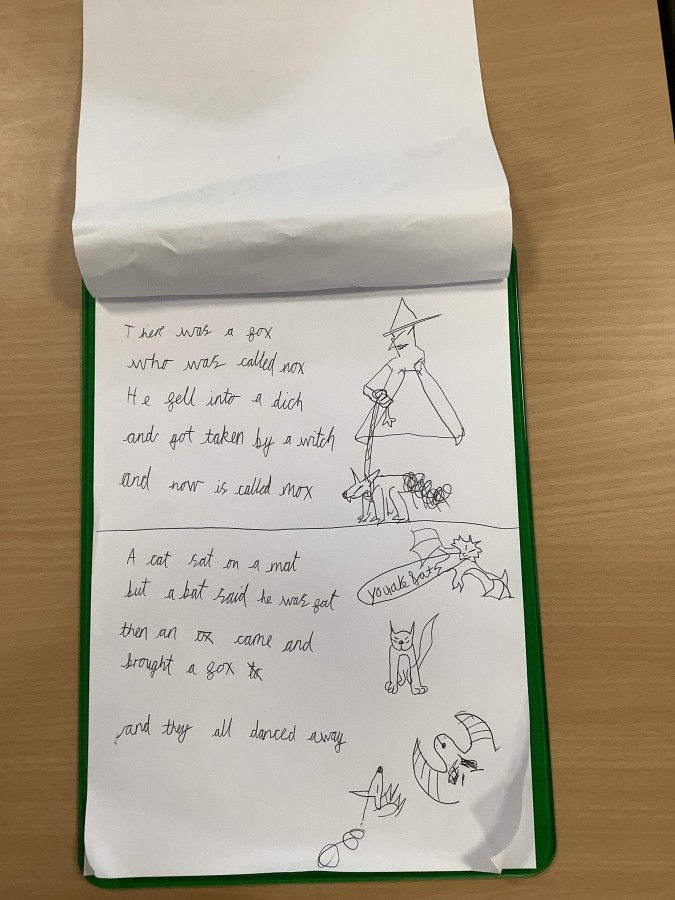 There was a fox
who was called nox
He fell into a dich
and got taken by a witch
and now is called mox
A cat sat on a mat
but a bat said he was fat
you are fat
then an ox came and
brought a fox
and they all danced away